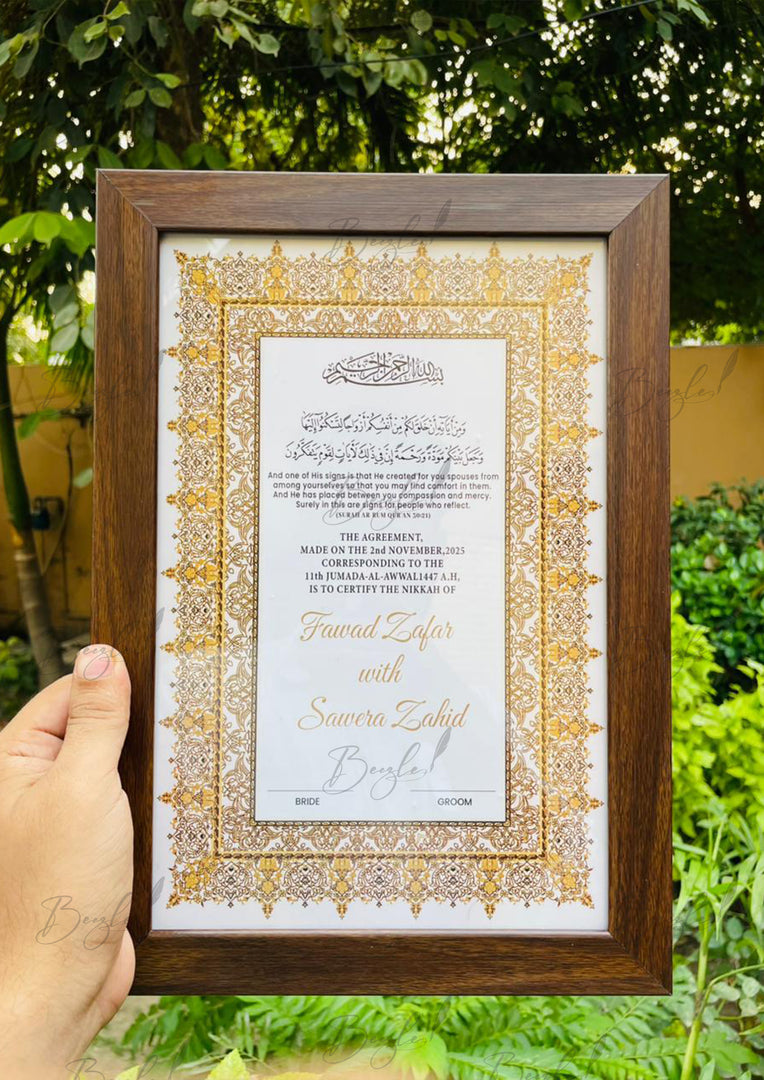 بسم الله الرحمن الرحيم
وَمِنْ آيَاتِهِ أَنْ خَلَقَ لَكُمْ مِنْ أَنْفُسِكُمْ أَزْوَاجًا لِتَسْكُنُوا إِلَيْهَا
وَجَعَلَ بَيْنَكُمْ مَوَدَّةً وَرَحْمَةً إِنَّ فِي ذَلِكَ لَآيَاتٍ لِقَوْمٍ يَتَفَكَّرُونَ
And one of His signs is that He created for you spouses from
among yourselves so that you may find comfort in them.
And He has placed between you compassion and mercy.
Surely in this are signs for people who reflect.
(SURAH AR RUM QUR'AN 30:21)
THE AGREEMENT,
MADE ON THE 2nd NOVEMBER,2025
CORRESPONDING TO THE
11th JUMADA-AL-AWWAL1447 A.H,
IS TO CERTIFY THE NIKKAH OF
Fawad Zafar
with
Sawera Zahid
Beezle
BRIDE GROOM